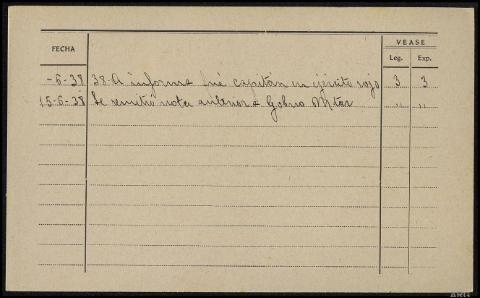 FECHA
VEASE
Leg. Exp.
-6-38 38-A informa fué capitán en ejército rojo 3 3
15-6-38 Se remitió nota anterior a Gobno Mtar " "